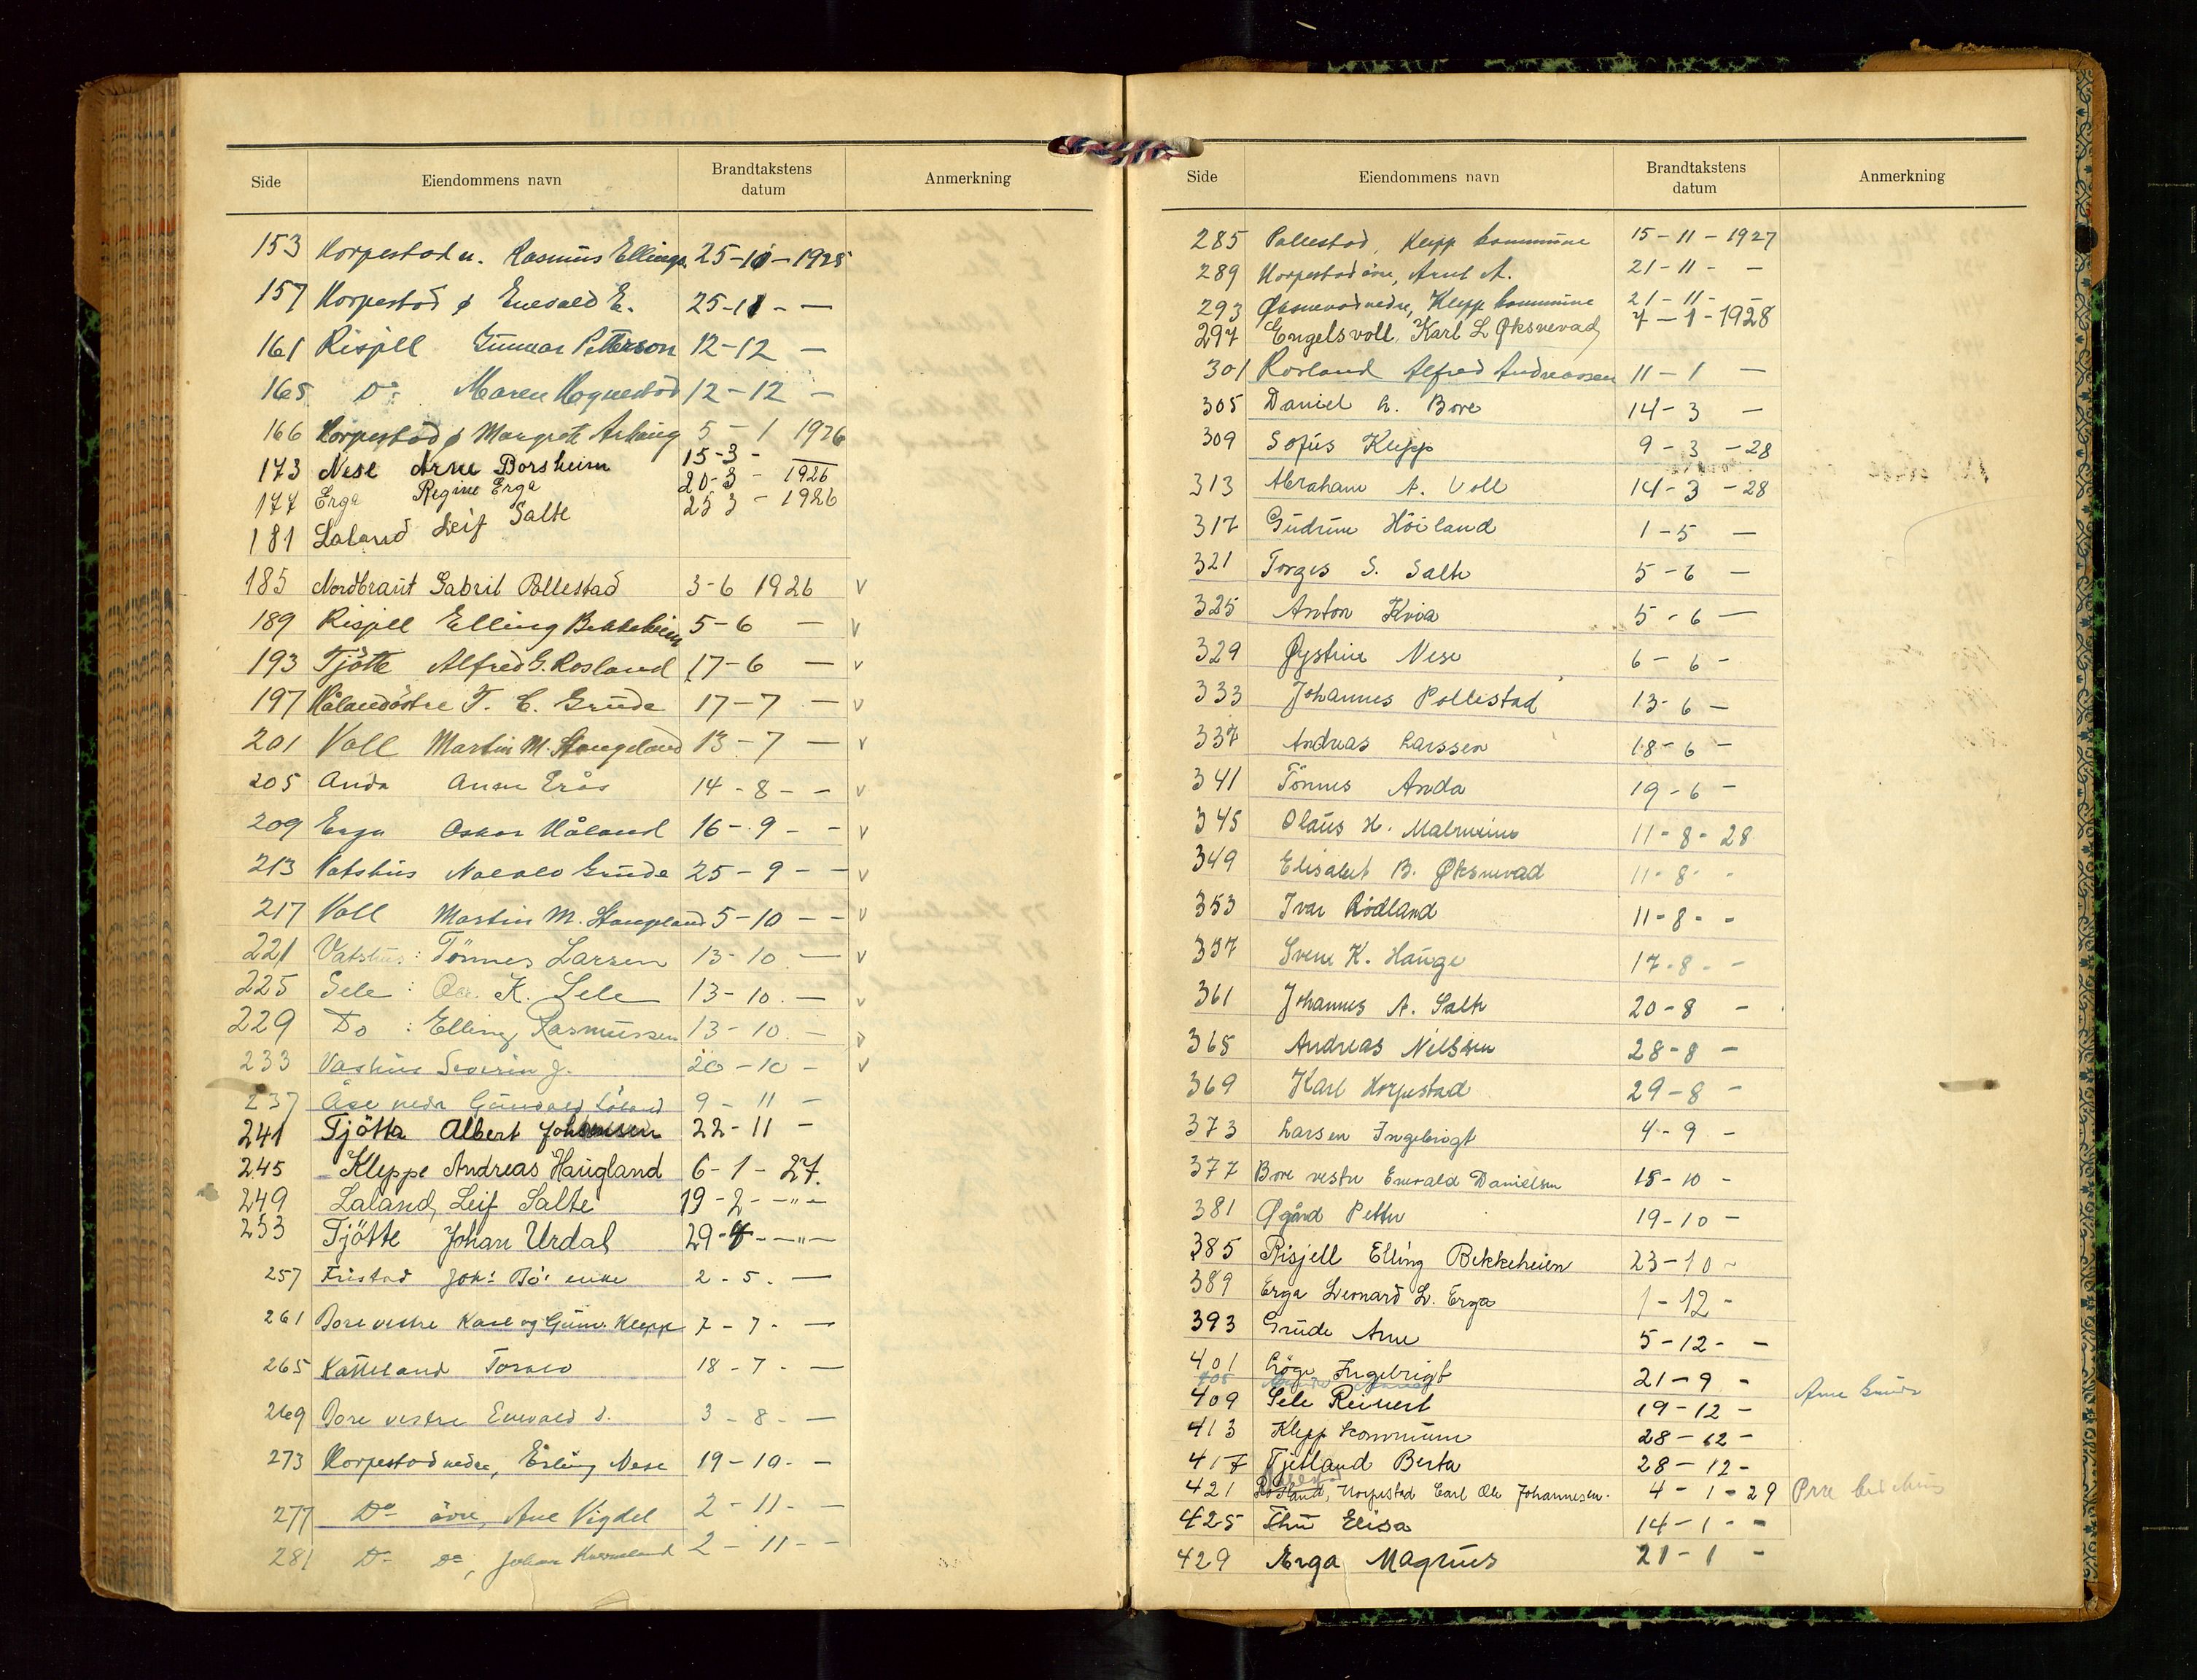 Side Eiendommens navn Brandtakstens datum Anmerkning
153 Horpestad n. Rasmus Ellings. 25-10-1925
157 Horpestad ø Enevald E. 25-11 - —
161 Risjell Gunnar Petterson 12-12 —
165 Do Maren Hognestad 12-12 —
166 Horpestad ø Margrete Arhaug 5 - 1 1926
173 Nese Arne Borsheim 15-3- —
177 Erga Regine Erga 20-3 - 1926
181 Laland Leif Salte 25 3 - 1926
185 Nordbraut Gabril Pollestad 3-6 1926 v
189 Risjell Elling Bekkeheien 5-6 — v
193 Tjötte Alfred G. Rosland 17-6 — v
197 Hålandöstre T. C. Grude 17-7 — v
201 Voll Martin M. Stangeland 13-7 — v
205 Anda Anna Erås 14-8- - v
209 Erga Oskar Håland 16-9 - - v
213 Vatshus Grude 25-9 - - v
217 Voll Martin M. Stangeland 5-10 - - v
221 Vatshus: Tönnes Larsen 13-10 — v
225 Sele: K. Sele 13-10. — v
229 Do : Elling Rasmussen 13-10. — v
233 Vashus Severin J. 20-10 - v
237 Åse nedr Gunvald 9 - 11 -
241 Tjötta Albert Johannsen 22-11 -
245 Kleppe Andreas Haugland 6-1- 27.
249 Laland, Leif Salte 19-2- -"-
253 Tjötte Johan Urdal 29-4- -"-
257 Friestad Joh: enke 2-5. —
261 Bore vestre Karl og Gunv. Klepp 7-7- —
265 Kåtteland 18-7- —
269 Bore vestre Enevald d. 3-8- —
273 Horpestad nedre, Erling Nese 19-10- -
277 Do övre, Ane Vigdel 2-11- —
281 Do Do, Johan 2-11- -
Side Eiendommens navn Brandtakstens datum Anmerkning
285 Pollestad, Klepp kommune 15-11-1927
289 Horpestad övre, Arnt A. 21-11- —
293 Øksnevad nedre, Klepp kommune 21-11- —
297 Engelsvoll, Karl L Øksnevad 7-1-1928
301 Rosland Alfred Andreassen 11-1 —
305 Daniel L. Bore 14-3 —
309 Sofus Klepp 9-3-28
313 Abraham A. Voll 14-3-28
317 Gudrun Höiland 1-5 —
321 Torges S. Salte 5-6 —
325 Anton Kvia 5-6 —
329 Øystein Nese 6-6 -
333 Johannes Pollestad 13-6 —
337 Andreas Larssen 18-6 -
341 Tönnes Anda 19-6 -
345 Olaus H. Malmeim 11-8-28
349 Elisabet B. Øksnevad 11-8- -
353 Ivar Rödland 11-8- -
357 Svene K. Hauge 17-8- -
361 Johannes A. Salte 20-8 -
365 Andreas Nilssen 28-8 -
369 Karl Horpestad 29-8 -
373 Larsen Ingebrigt 4-9 -
377 Bore vestre Enevald Danielsen 15-10 -
381 Øgård Petter 19-10 -
385 Risjell Elling Bekkeheien 23-10 -
389 Erga Leonard L. Erga 1-12 -
393 Grude Arne 5-12- -
401 Löge Ingebrigt 21-9 -
405 Arne Grude
409 Sele Reinert 19-12 -
413 Klepp kommune 28-12-
417 Tjetland Berta 28-12-
421 Horpestad Carl Ole Johannesen. 4-1-29
425 Thu Elisa 14-1- -
429 Erga Magnus 21-1 -